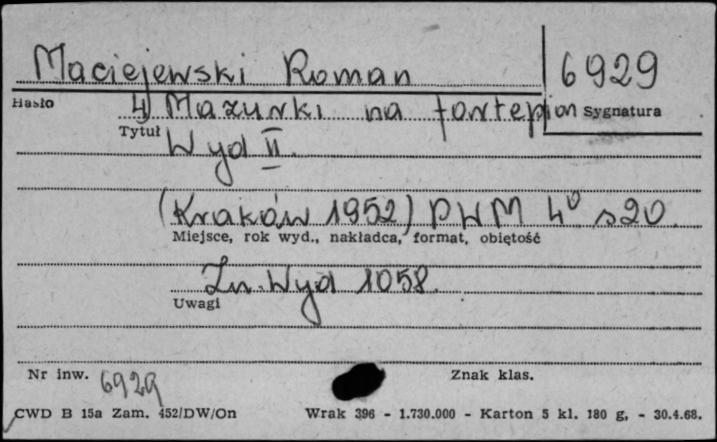 Maciejewski Roman
6929
Hasło
4) Mazurki na fortepian
Sygnatura
Tytuł
Wyd II.
(Kraków 1952) PWM 4⁰ s 20.
Miejsce, rok wyd., nakładca, format, objętość
Zn. Wyd 1058.
Uwagi
Nr inw. 6929
Znak klas.
CWD B 15a Zam. 452/DW/On
Wrak 396 - 1.730.000 - Karton 5 kl. 180 g. - 30.4.68.